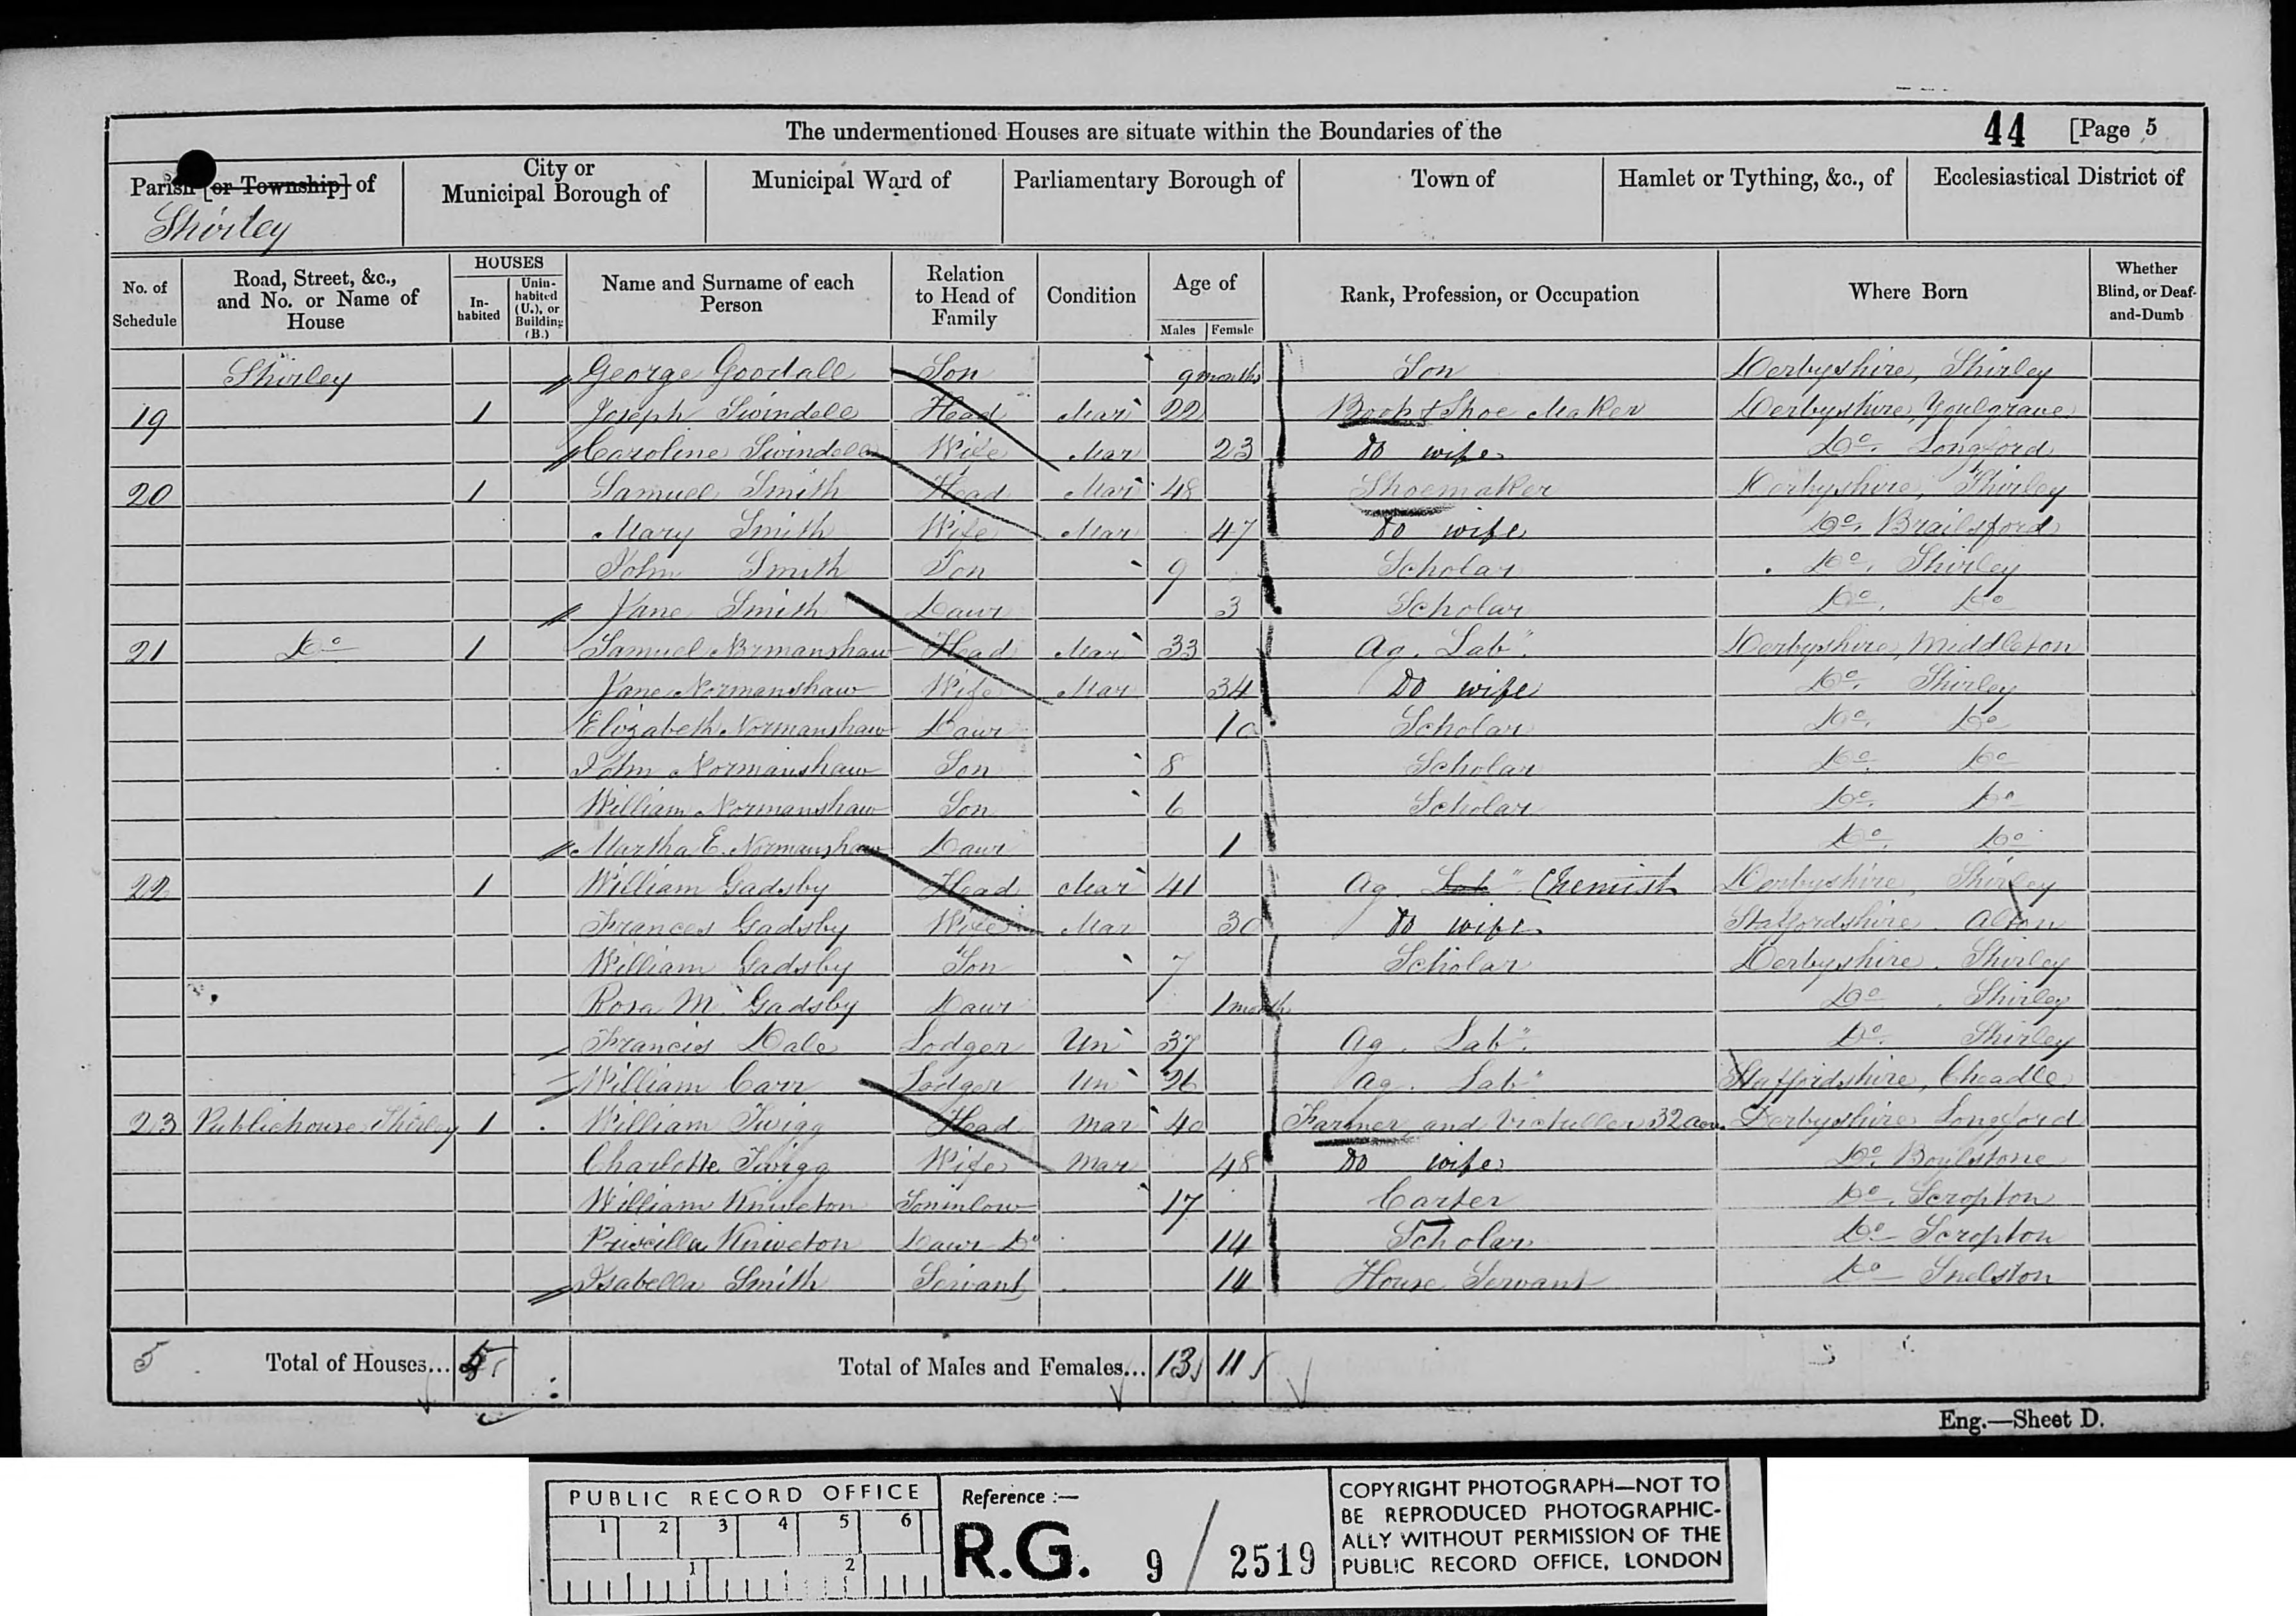 The undermentioned Houses are situate within the Boundaries of the 44 [Page 5
Parish [or Township] of City or Municipal Borough of Municipal Ward of Parliamentary Borough of Town of Hamlet or Tything, &c., of Ecclesiastical District of
Shirley
No. of Schedule Road, Street, &c., and No. or Name of House HOUSES In-habited Unin-habited (U.), or Building (B.) Name and Surname of each Person Relation to Head of Family Condition Age of Males Female Rank, Profession, or Occupation Where Born Whether Blind, or Deaf-and-Dumb
Shirley George Goodall Son 9 months Son Derbyshire, Shirley
19 1 Joseph Swindell Head Mar 22 Boot & Shoe Maker Derbyshire, Youlgrave
Caroline Swindell Wife Mar 23 Do wife Do. Longford
20 1 Samuel Smith Head Mar 48 Shoemaker Derbyshire, Shirley
Mary Smith Wife Mar 47 Do wife Do. Brailsford
John Smith Son 9 Scholar Do. Shirley
Jane Smith Daur 3 Scholar Do. Do
21 Do 1 Samuel Normanshaw Head Mar 33 Ag. Lab". Derbyshire, Middleton
Jane Normanshaw Wife Mar 34 Do wife Do. Shirley
Elizabeth Normanshaw Daur 10 Scholar Do. Do
John Normanshaw Son 8 Scholar Do. Do
William Normanshaw Son 6 Scholar Do. Do
Martha E. Normanshaw Daur 1 Do. Do
22 1 William Gadsby Head Mar 41 Ag. Lab". Chemist Derbyshire, Shirley
Frances Gadsby Wife Mar 30 Do wife Staffordshire. Alton
William Gadsby Son 7 Scholar Derbyshire. Shirley
Rosa M. Gadsby Daur 1 month Do. Shirley
Francis Dale Lodger Un 37 Ag. Lab". Do. Shirley
William Carr Lodger Un 26 Ag. Lab" Staffordshire, Cheadle
23 Publichouse Shirley 1 William Twigg Head Mar 40 Farmer and Victuller 32 acrs. Derbyshire Longford
Charlotte Twigg Wife Mar 48 Do wife Do. Boylstone
William Kniveton Soninlow 17 Carter Do. Scropton
Priscilla Kniveton Daur Do 14 Scholar Do Scropton
Isabella Smith Servant 14 House Servant Do Snelston
5 Total of Houses... 5 Total of Males and Females... 13 11
Eng.—Sheet D.
PUBLIC RECORD OFFICE
1 2 3 4 5 6
1 2
Reference :—
R.G. 9 / 2519
COPYRIGHT PHOTOGRAPH—NOT TO
BE REPRODUCED PHOTOGRAPHIC-
ALLY WITHOUT PERMISSION OF THE
PUBLIC RECORD OFFICE, LONDON